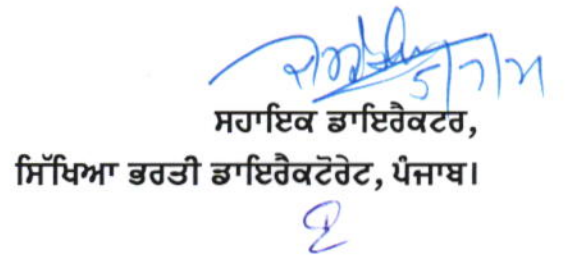 ਸਹਾਇਕ ਡਾਇਰੈਕਟਰ,
ਸਿੱਖਿਆ ਭਰਤੀ ਡਾਇਰੈਕਟੋਰੇਟ, ਪੰਜਾਬ।